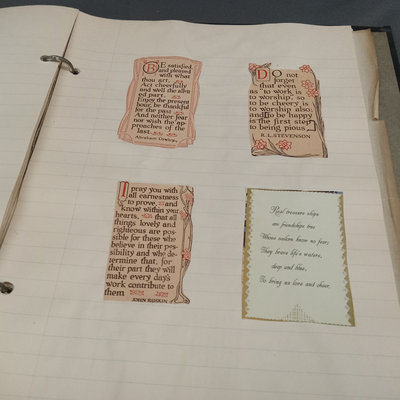 BE satisfied,
and pleased
with what
thou art,
Act cheerfully
and well the allot
ed part.
Enjoy the present
hour, be thankful
for the past
And neither fear
nor wish the ap-
proaches of the
last.
Abraham Cowley.
DO not
forget
that even
as "to work is
to worship," so
to be cheery is
to worship also;
and to be happy
is the first step
to being pious.
R.L. STEVENSON
I pray you with
all earnestness
to prove, and
know within your
hearts, that all
things lovely and
righteous are pos-
sible for those who
believe in their pos-
sibility and who de-
termine that, for
their part they will
make every day's
work contribute to
them
JOHN RUSKIN
Real treasure ships
are friendships true
Whose sailors know no fear;
They brave life's waters,
deep and blue,
To bring us love and cheer.